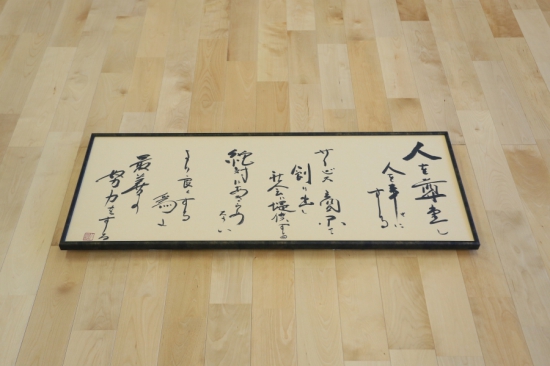 人を尊重し
人を幸せに
する
サービス商品を
創り出し
社会に提供する
絶対にあきらめ
ない
より良くする
為に
最善の
努力をする